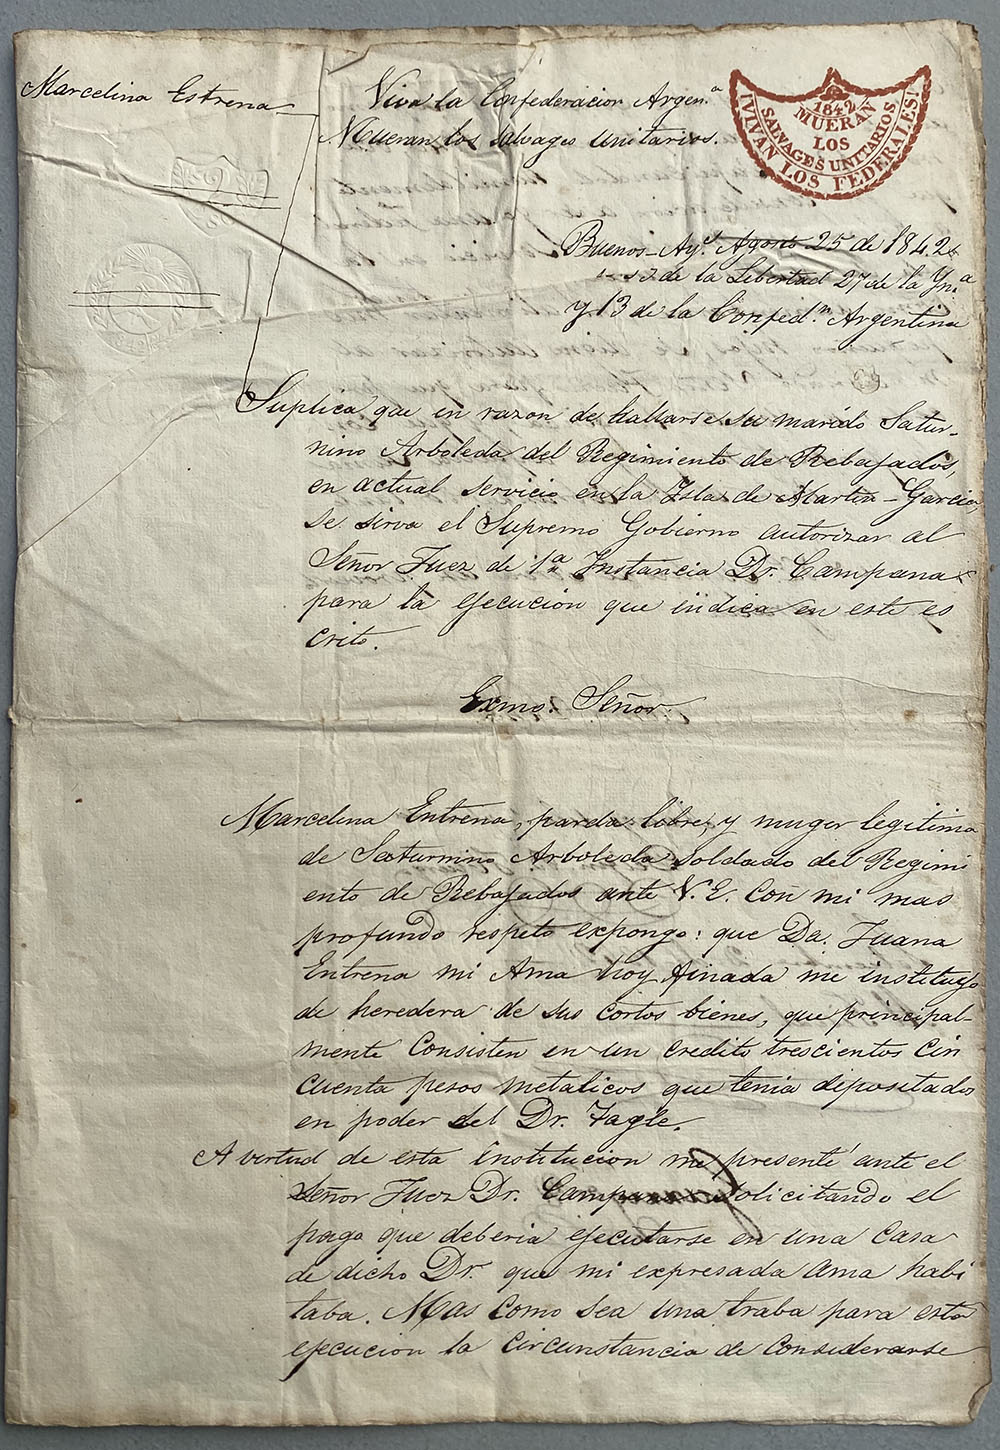 Marcelina Estrena
Viva la Confederacion Argen.ª
Mueran los salvages unitarios.
¡VIVAN LOS FEDERALES!
1842
MUERAN
LOS
SALVAGES UNITARIOS
Buenos-Ay.s Agosto 25 de 1842
de la Libertad 27 de la Yn.ª
y 13 de la Confed.n Argentina
Suplica que en razon de hallarse su marido Satur-
nino Arboleda del Regimiento de Rebajados,
en actual servicio en la Isla de Martin-Garcia,
se sirva el Supremo Gobierno autorizar al
Señor Juez de 1ª Instancia Dr. Campana
para la ejecución que indica en este es
crito.
Exmo. Señor.
Marcelina Entrena, parda libre, y muger legitima
de Saturnino Arboleda Soldado del Regimi
ento de Rebajados ante V.E. con mi mas
profundo respeto expongo: que Da. Juana
Entrena mi Ama hoy finada me instituyo
de heredera de sus cortos bienes, que principal-
mente consisten en un credito trescientos cin
cuenta pesos metalicos que tenia depositados
en poder del Dr. Tagle.
A virtud de esta institucion me presenté ante el
Señor Juez Dr. Campana solicitando el
pago que deberia ejecutarse en una casa
de dicho Dr. que mi expresada ama habi
taba. Mas como sea una traba para esta
ejecucion la circunstancia de considerarse